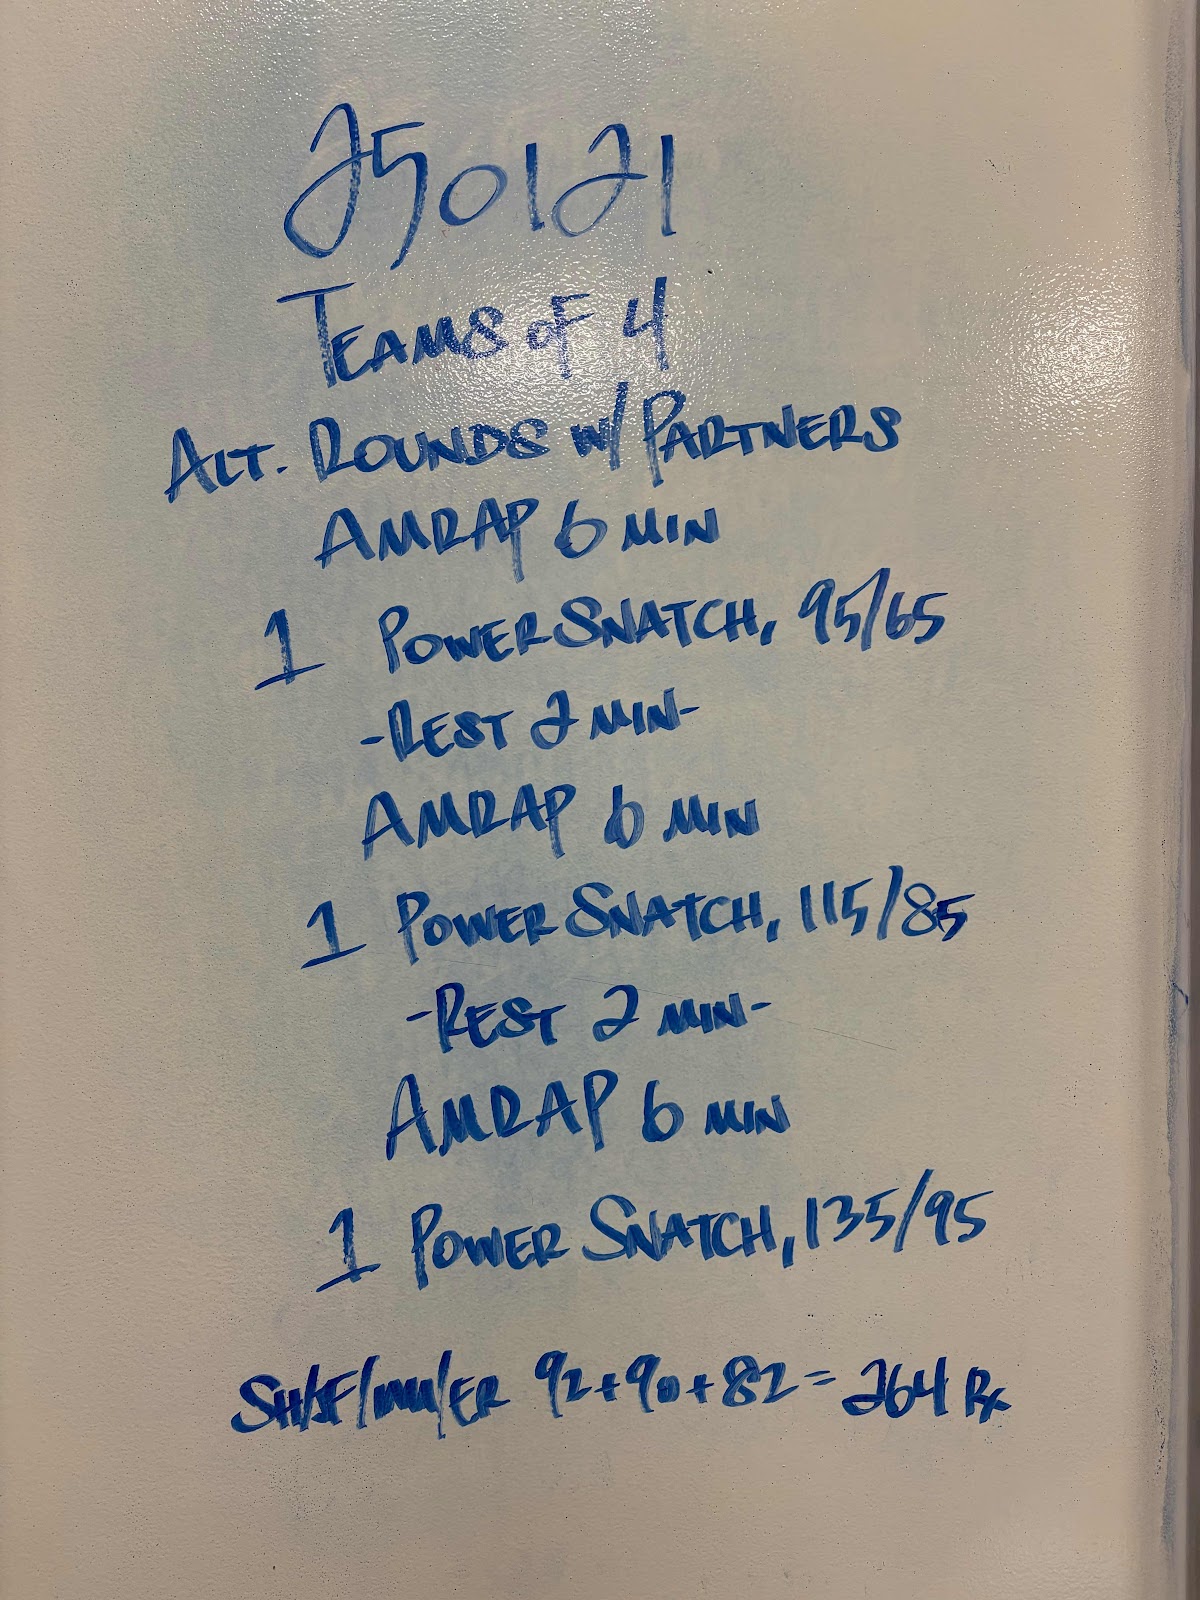 250121
TEAMS OF 4
ALT. ROUNDS W/ PARTNERS
AMRAP 6 MIN
1 POWER SNATCH, 95/65
-REST 2 MIN-
AMRAP 6 MIN
1 POWER SNATCH, 115/85
-REST 2 MIN-
AMRAP 6 MIN
1 POWER SNATCH, 135/95
92+90+82=264 Rx